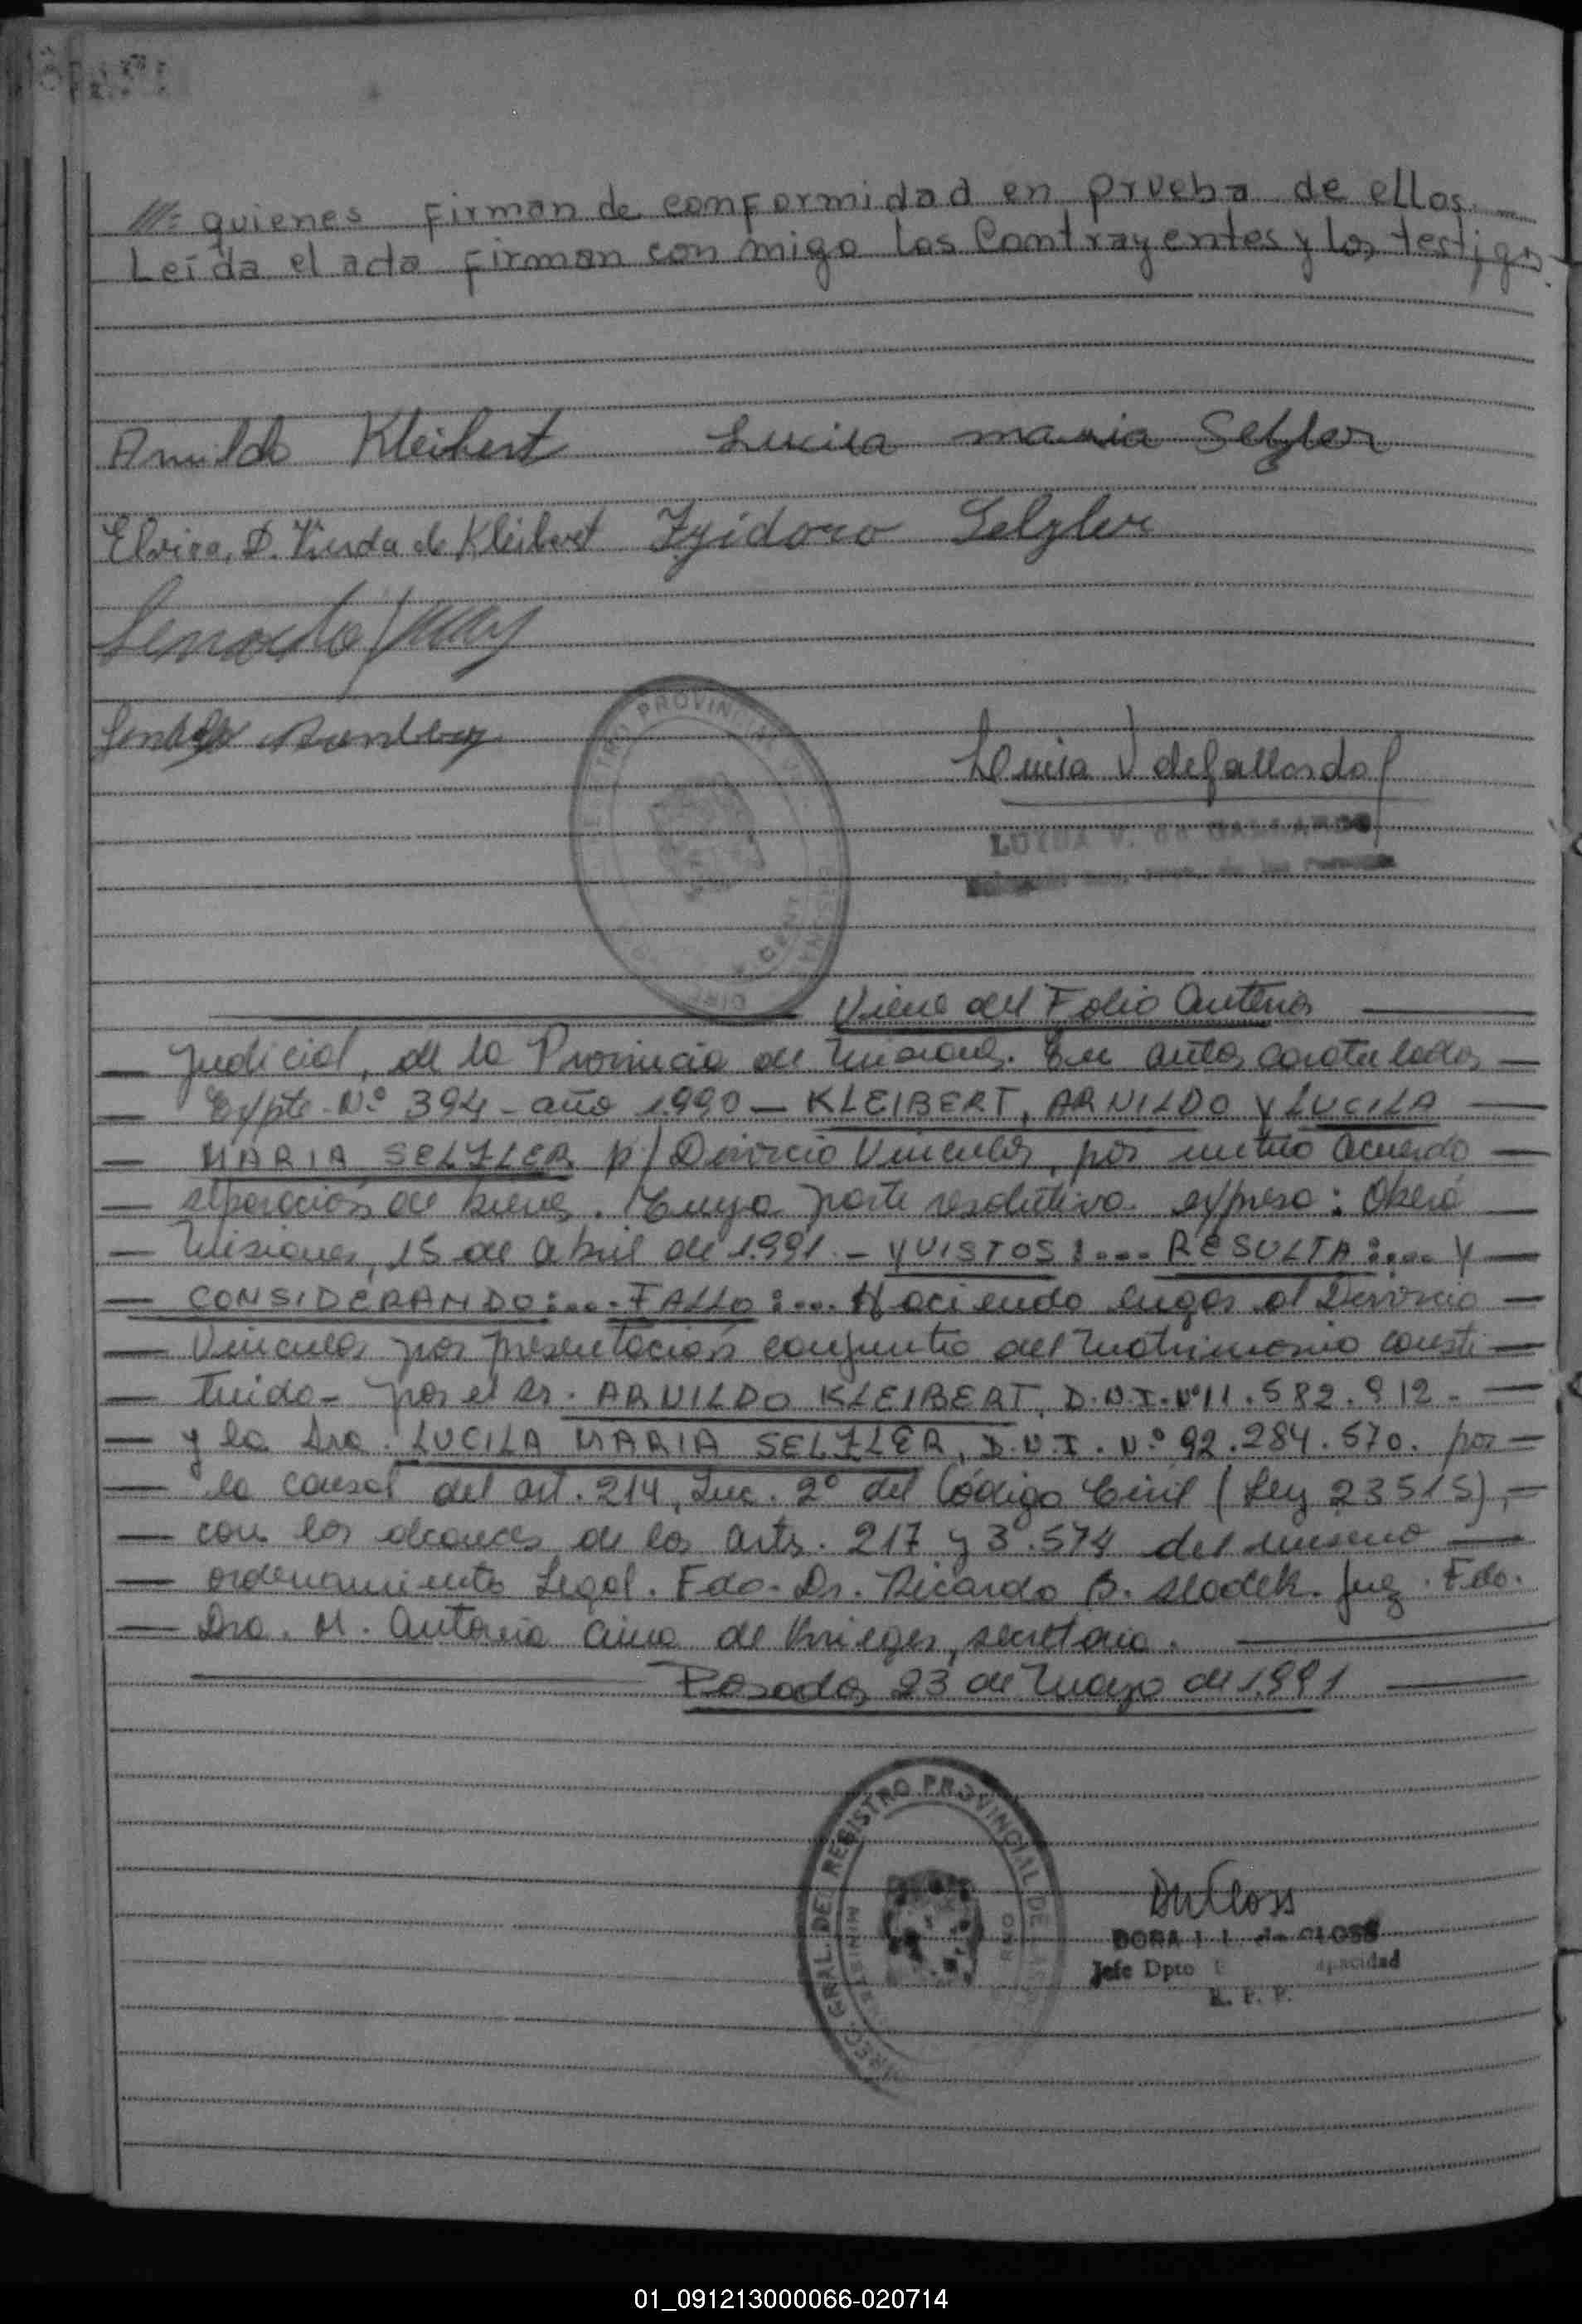 ///= quienes firman de conformidad en prueba de ellos.—
Leída el acta firman con migo los Contrayentes y los testigos.
Arnildo Kleibert Lucila maria Selzler
Elvira D. Viuda de Kleibert Izidoro Selzler
Luisa V de Gallardo
LUISA V. de GALLARDO
PROVINCIAL
Viene del Folio Anterior
— Judicial, de la Provincia de Misiones. En autos caratulados —
— Expte. N.º 394 - año 1.990 — KLEIBERT, ARNILDO y LUCILA —
— MARIA SELZLER p/ Divorcio Vincular, por mutuo acuerdo —
— separación de bienes. Cuya parte resolutiva expresa: Oberá —
— Misiones, 15 de abril de 1.991. - Y VISTOS:.... RESULTA:.... Y —
— CONSIDERANDO:... FALLO:... Haciendo lugar al Divorcio —
— Vincular por presentación conjunta del Matrimonio consti —
— tuido - por el Sr. ARNILDO KLEIBERT, D.N.I. Nº 11.582.912. —
— y la Sra. LUCILA MARIA SELZLER, D.N.I. N.º 92.284.570. por —
— la causal del art. 214, Inc. 2º del Código Civil (Ley 23515), —
— con los alcances de los arts. 217 y 3.574 del mismo —
— ordenamiento Legal. Fdo. Dr. Ricardo B. Sladek. Juez. Fdo.
— Dra. M. Antonia de Krieger, secretaria. —
Posadas 23 de Mayo de 1.991
DIREC. GRAL. DEL REGISTRO PROVINCIAL DE
DORA I. L. de CLOSS
Jefe Dpto
R. P. P.
01_091213000066-020714